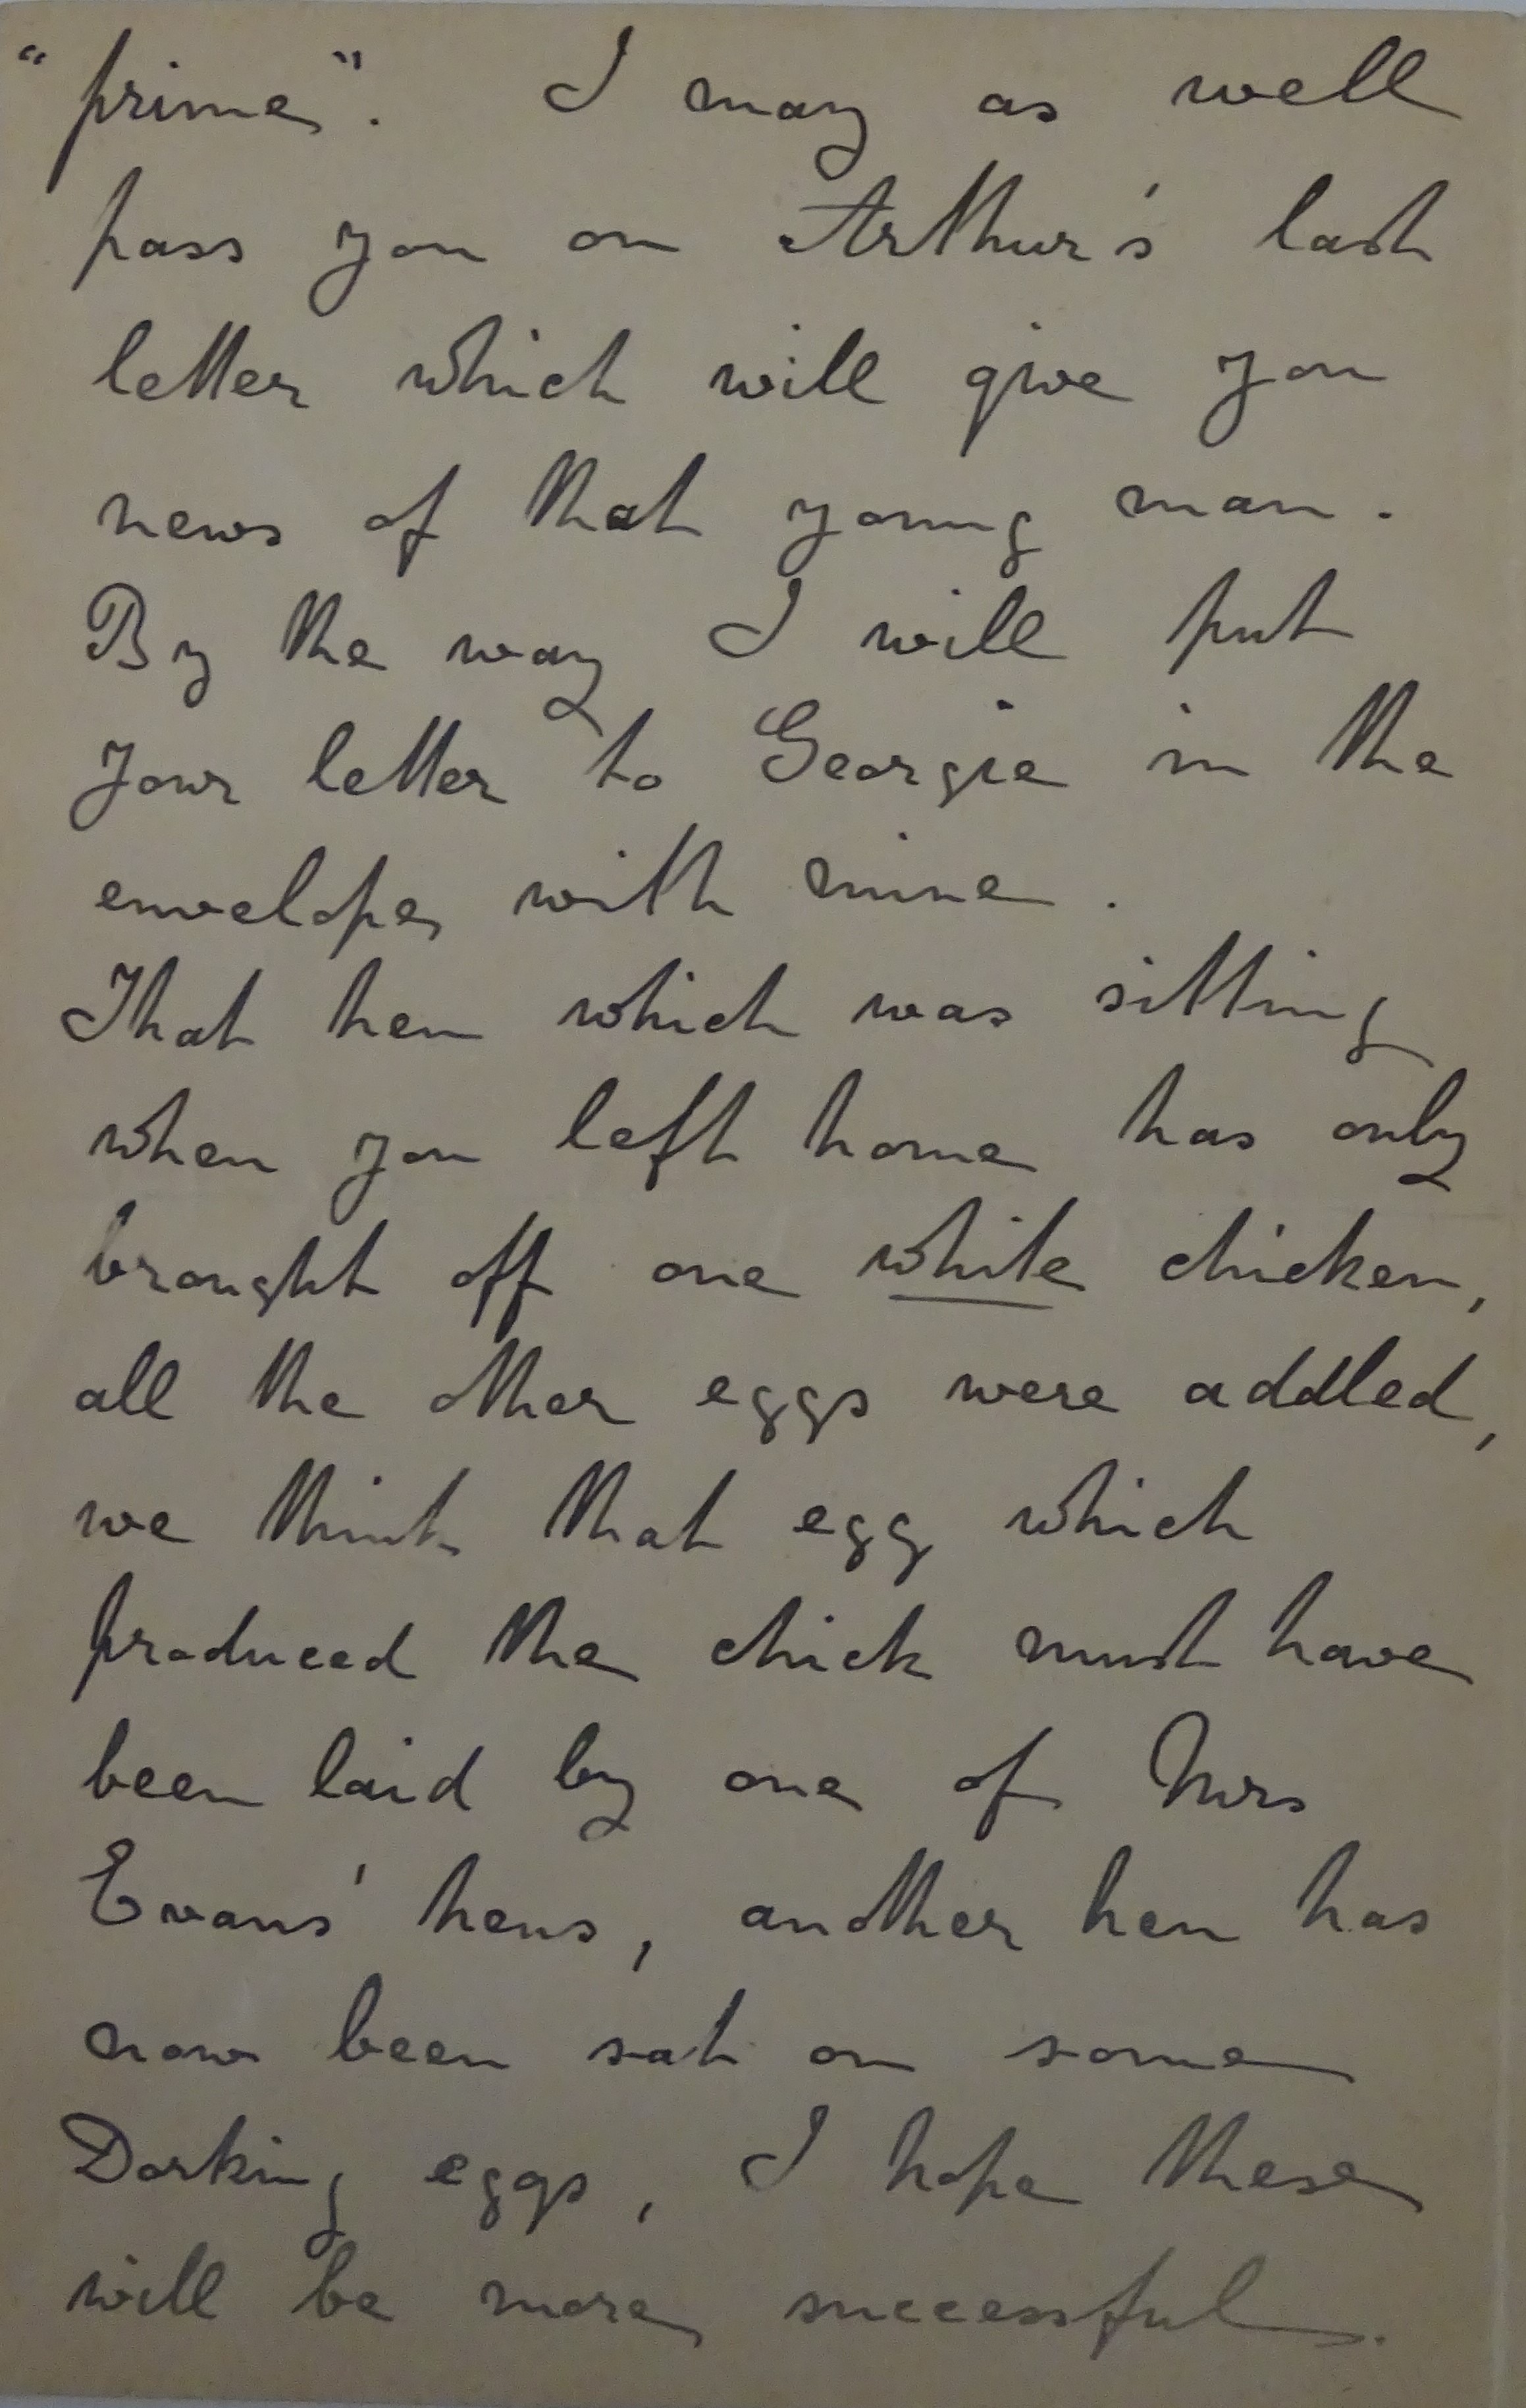 "prime". I may as well
pass you on Arthur's last
letter which will give you
news of that young man.
By the way I will put
your letter to Georgie in the
envelope with mine.
That hen which was sitting
when you left home has only
brought off one white chicken,
all the other eggs were addled,
we think that egg which
produced the chick must have
been laid by one of Mrs
Evans' hens, another hen has
now been sat on some
Dorking eggs, I hope these
will be more successful.